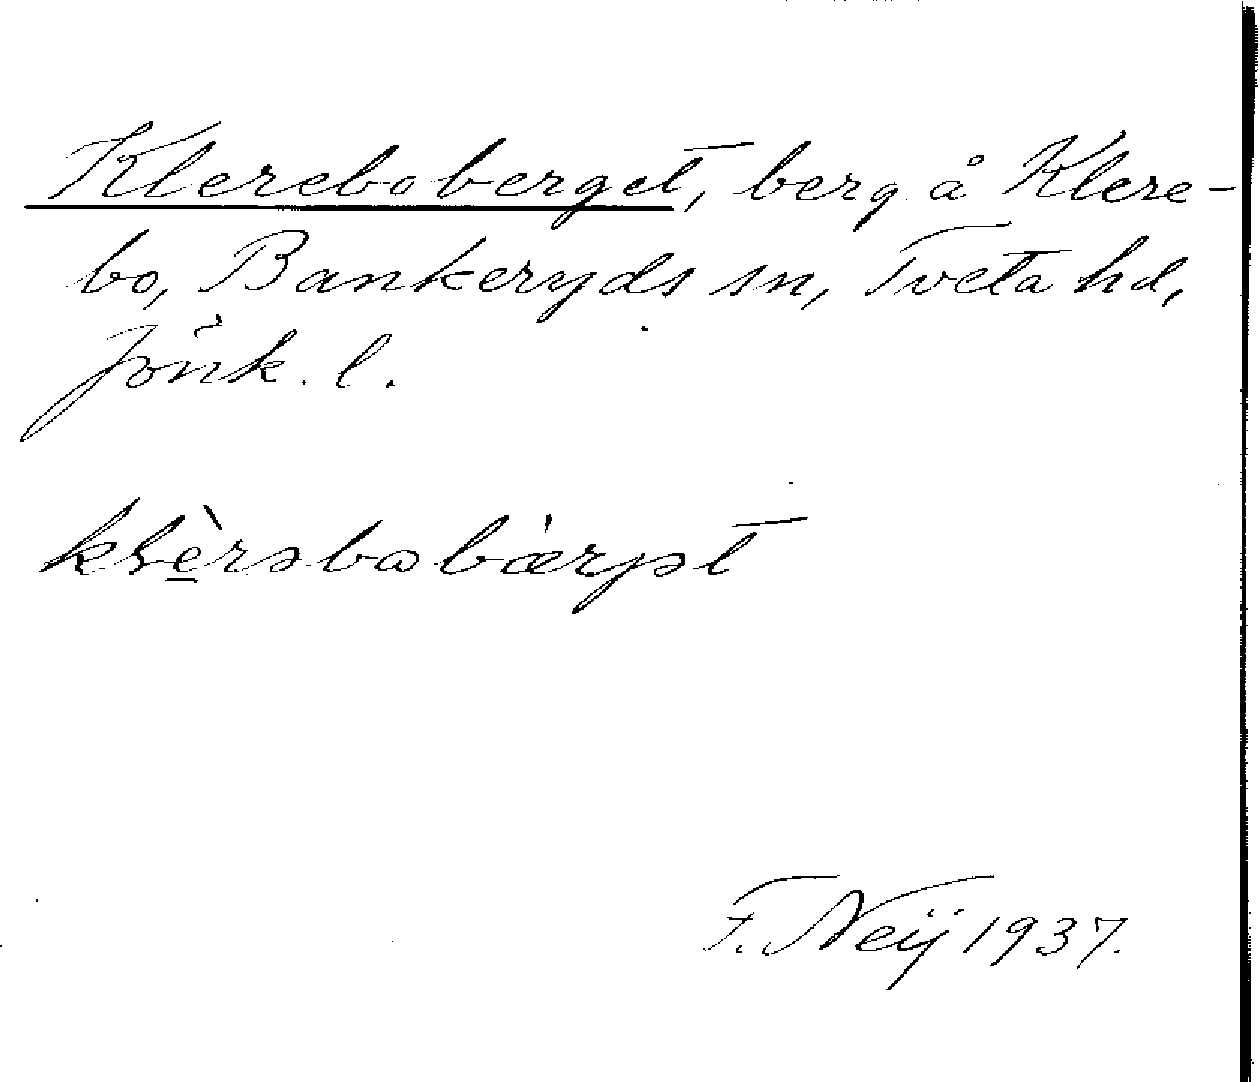 Klereboberget, berg å Klere-
bo, Bankeryds sn, Tveta hd,
Jönk. l.
F. Neij 1937.